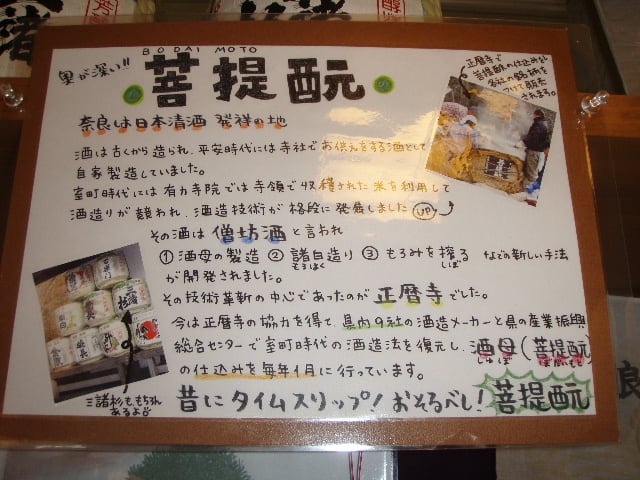 奥が深い!!
BODAI MOTO
菩提酛
奈良は日本清酒 発祥の地
酒は古くから造られ、平安時代には寺社でお供えをする酒として
自家製造していました。
室町時代には有力寺院では寺領で収穫された米を利用して
酒造りが競われ、酒造技術が格段に発展しました UP!
その酒は 僧坊酒 と言われ
①酒母の製造 ②諸白造り ③もろみを搾る などの新しい手法
もろはく しぼ
が開発されました。
その技術革新の中心であったのが 正暦寺 でした。
今は正暦寺の協力を得て、県内9社の酒造メーカーと県の産業振興
総合センターで室町時代の酒造法を復元し、酒母(菩提酛)
しゅぼ ぼだいもと
の仕込みを毎年1月に行っています。
昔にタイムスリップ! おそるべし! 菩提酛
正暦寺で
菩提酛の仕込み
各社の銘柄を
つけて販売
されます。
三諸杉も、もちろん
あるよ
諸
良